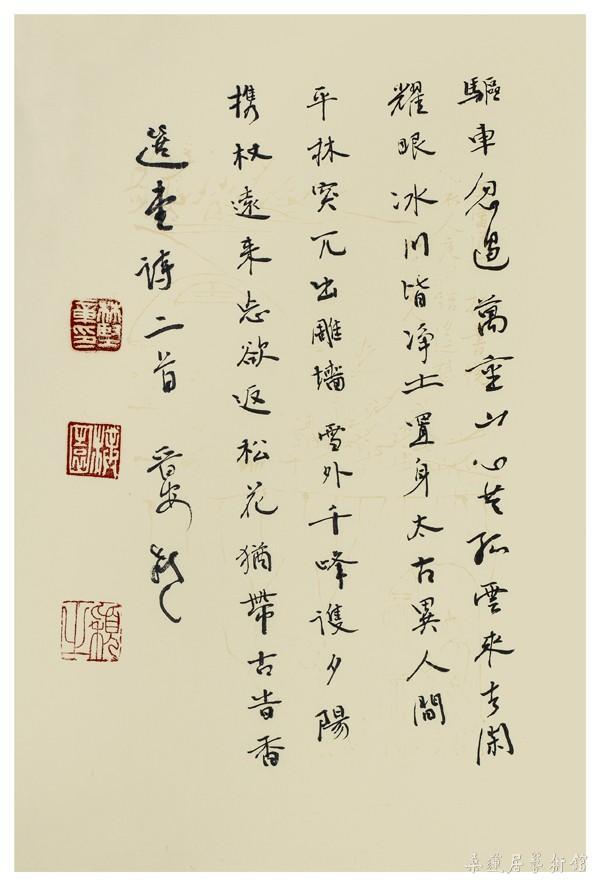 驅車忽過萬重山心共孤雲來去閑
耀眼冰川皆淨土置身太古異人間
平林突兀出雕墻雪外千峰護夕陽
携杖遠来忘欲返松花猶帶古旹香
選堂詩二首 晉安
桑蓮居藝術館